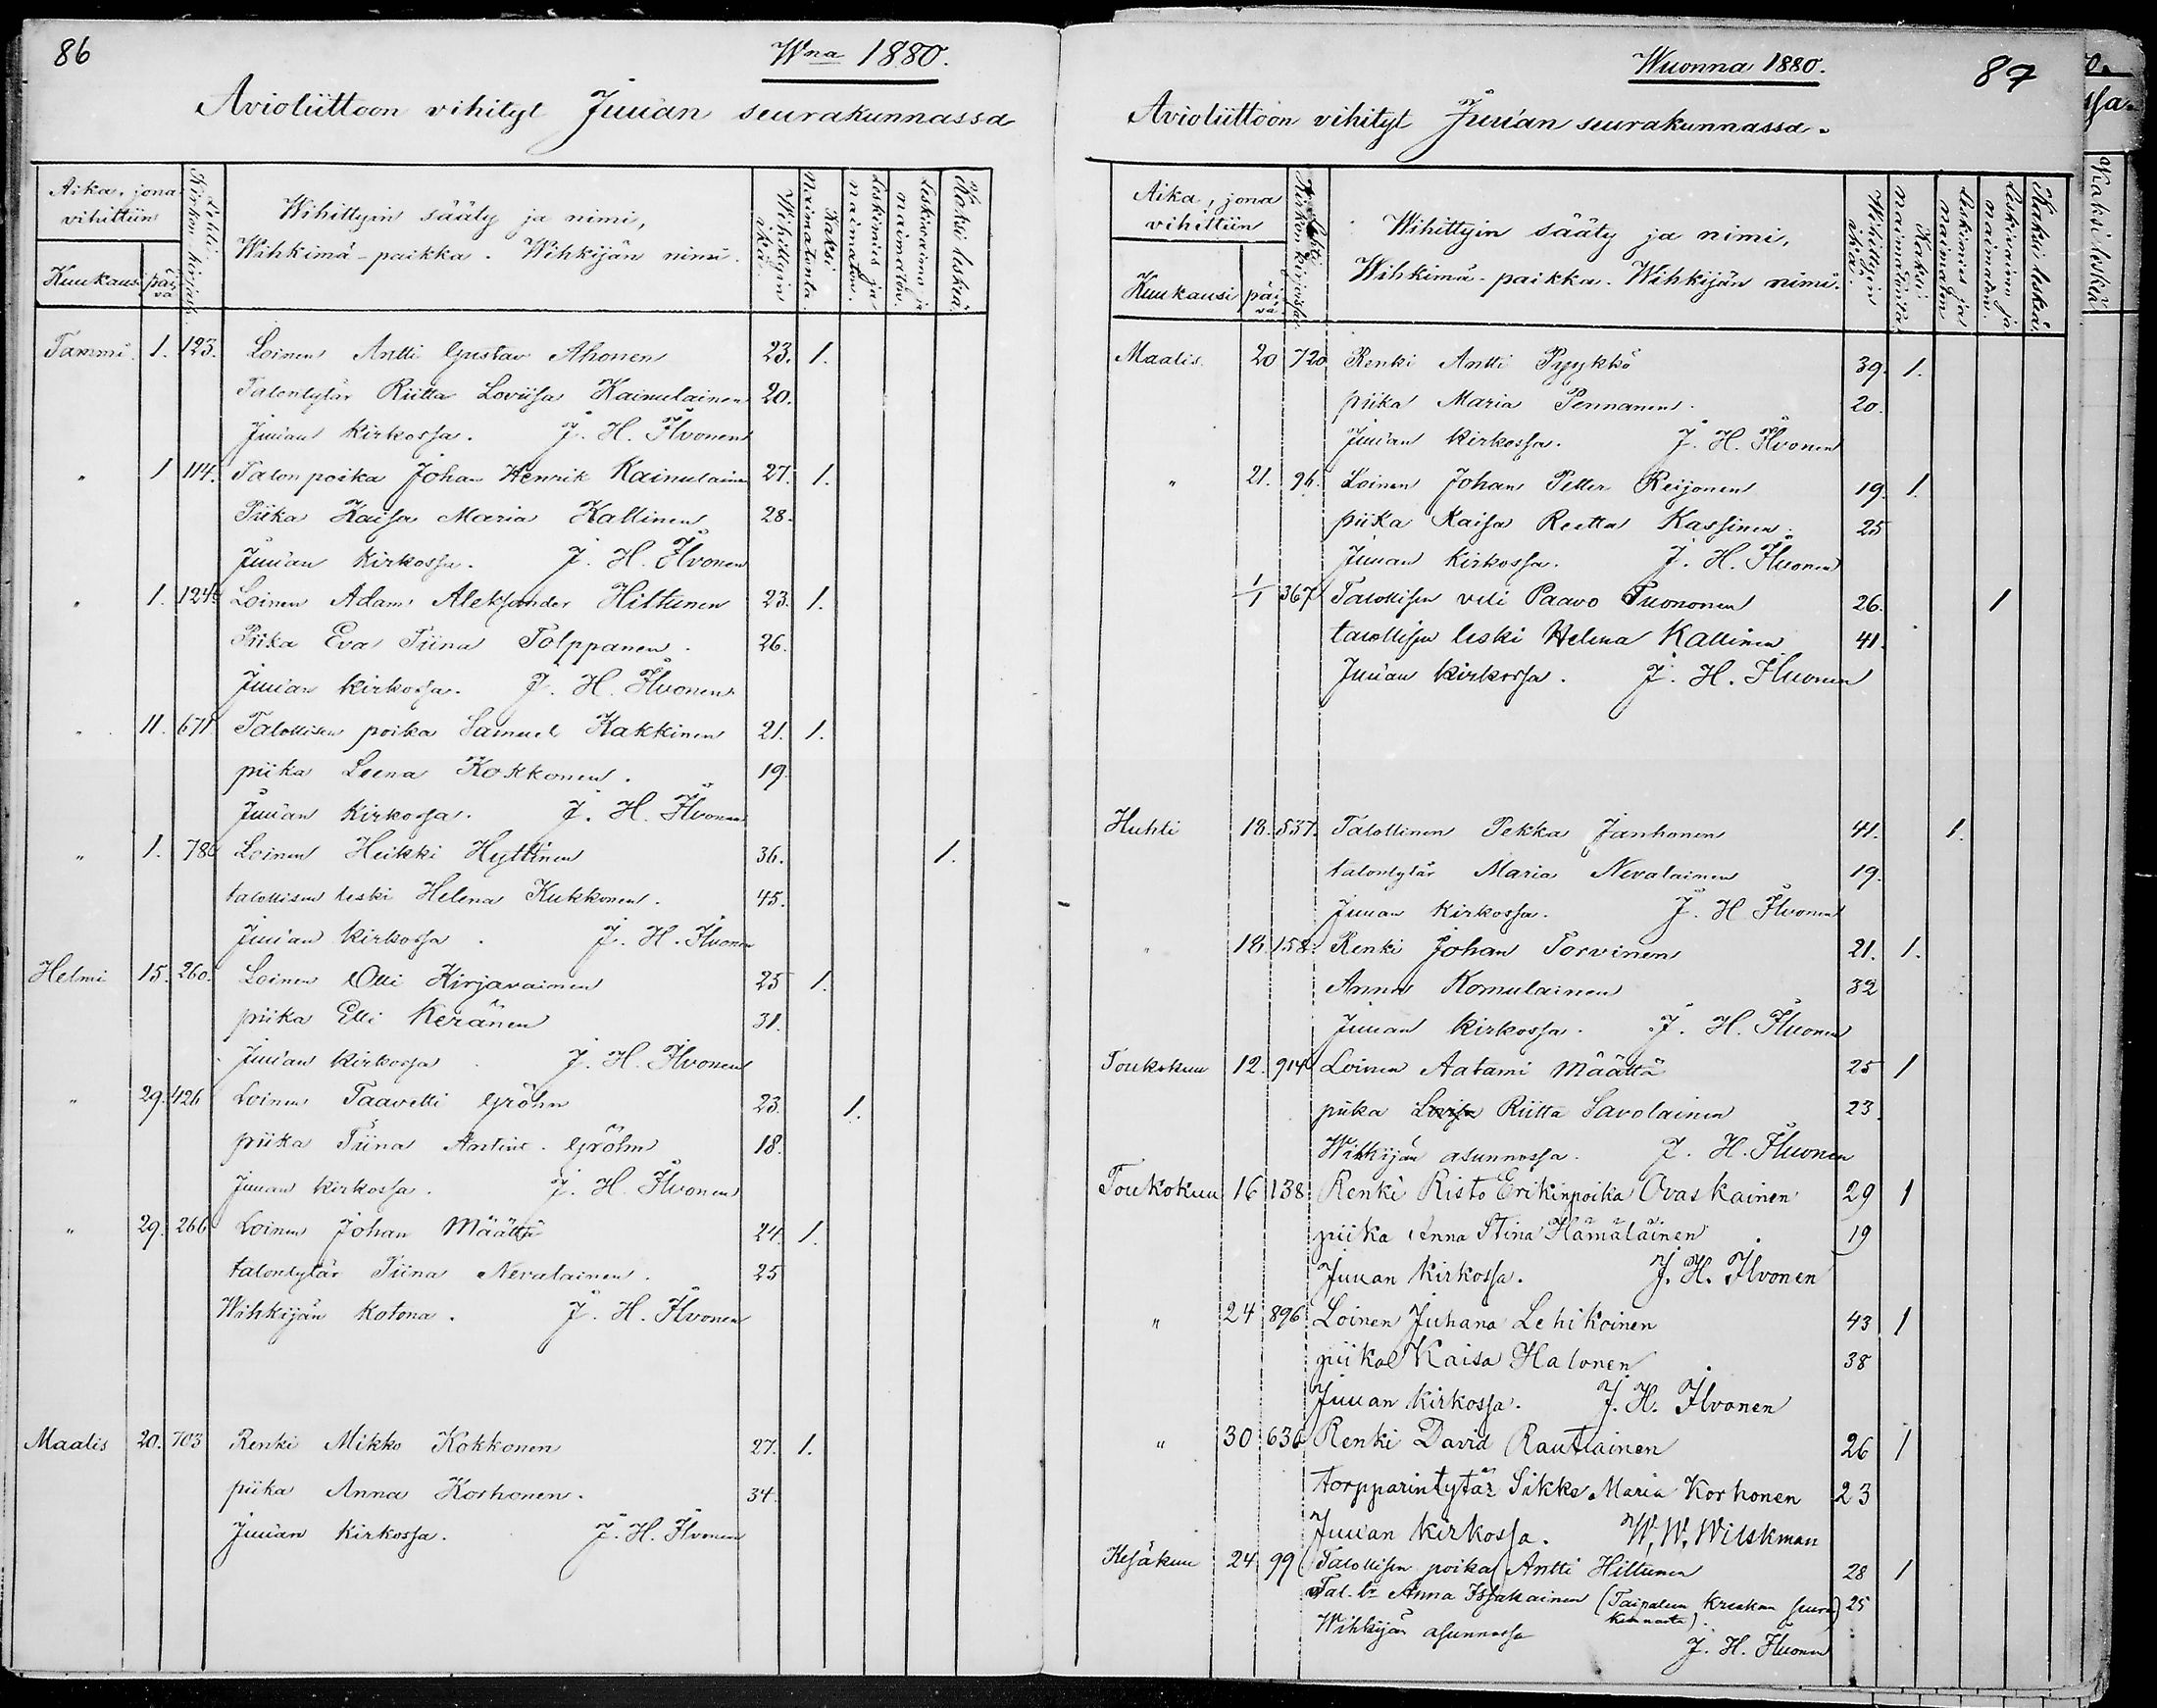 86
Wna 1880.
Avioliittoon vihityt Juuan seurakunnassa
Aika, jona vihittiin
Kuukausi
päivä
Lehti Kirkon kirjassa
Wihittyin sääty ja nimi,
Wihkimä-paikka. Wihkijän nimi.
Wihittyin ikä.
Kaksi naimatonta.
Leskimies ja naimaton.
Leskivaimo ja naimaton.
Kaksi leskeä.
Tammi. 1. 123. Loinen Antti Gustav Ahonen 23. 1.
Talontytär Riitta Loviisa Kainulainen 20.
Juuan Kirkossa. J. H. Ilvonen
" 1 114. Talon poika Johan Henrik Kainulainen 27. 1.
Piika Kaisa Maria Kallinen 28.
Juuan Kirkossa. J. H. Ilvonen
" 1. 124. Loinen Adam Aleksander Hiltunen 23. 1.
Piika Eva Tiina Tolppanen. 26.
Juuan kirkossa. J. H. Ilvonen
" 11. 671 Talollisen poika Samuel Kakkinen 21. 1.
piika Leena Kokkonen. 19.
Juuan Kirkossa. J. H. Ilvonen
" 1. 786 Loinen Heikki Hyttinen 36. 1.
talollisen leski Helena Kukkonen. 45.
Juuan Kirkossa. J. H. Ilvonen
Helmi 15. 260. Loinen Olli Kirjavainen 25 1.
piika Elli Keränen 31.
Juuan kirkossa J. H. Ilvonen
" 29. 426 Loinen Taavetti Gröhn 23. 1.
piika Tiina Antint. Gröhn 18.
Juuan kirkossa. J. H. Ilvonen
" 29. 266 Loinen Johan Määttä 24. 1.
talontytär Tiina Nevalainen. 25
Wihkijän Kotona. J. H. Ilvonen
Maalis 20. 703 Renki Mikko Kokkonen 27. 1.
piika Anna Korhonen. 34.
Juuan Kirkossa. J. H. Ilvonen
Wuonna 1880.
87
Avioliittoon vihityt Juuan seurakunnassa.
Aika, jona vihittiin
Kuukausi
päivä
Lehti Kirkon kirjassa
Wihittyin sääty ja nimi,
Wihkimä-paikka. Wihkijän nimi.
Wihittyin ikä.
Kaksi naimatonta
Leskimies ja naimaton
Leskivaimo ja naimaton.
Kaksi leskeä.
Maalis. 20 720 Renki Antti Pyykkö 39. 1.
piika Maria Pennanen. 20.
Juuan Kirkossa. J. H. Ilvonen
" 21. 96. Loinen Johan Petter Reijonen 19. 1.
piika Kaisa Reetta Kassinen. 25
Juuan Kirkossa. J. H. Ilvonen
1/1 367 Talollisen veli Paavo Tuononen 26. 1
talollisen leski Helena Kallinen 41.
Juuan Kirkossa. J. H. Ilvonen
Huhti 18. 537. Talollinen Pekka Janhonen 41. 1.
talontytär Maria Nevalainen 19.
Juuan Kirkossa. J. H Ilvonen
" 18. 158. Renki Johan Torvinen 21. 1.
Anna Komulainen 32
Juuan Kirkossa. J. H. Ilvonen
Toukokuu 12. 914 Loinen Aatami Määttä 25 1
piika Riitta Savolainen 23.
Wihkijän asunnossa. J. H. Ilvonen
Toukokuu 16 138 Renki Risto Erikinpoika Ovaskainen 29 1
piika Anna Stina Hämäläinen 19
Juuan Kirkossa. J. H. Ilvonen
" 24 896 Loinen Juhana Lehikoinen 43 1
piika Kaisa Halonen 38
Juuan Kirkossa. J. H. Ilvonen
" 30 636 Renki David Rautiainen 26 1
torpparintytär Sikke Maria Korhonen 23
Juuan Kirkossa. W. W. Wilskman
Kesäkuu 24 99 Talollisen poika Antti Hiltunen 28 1
Tal. tr Anna Issakainen (Taipaleen Kreekan seura) 25
kunnasta).
Wihkijän asunnossa J. H. Ilvonen
Kaksi leskeä